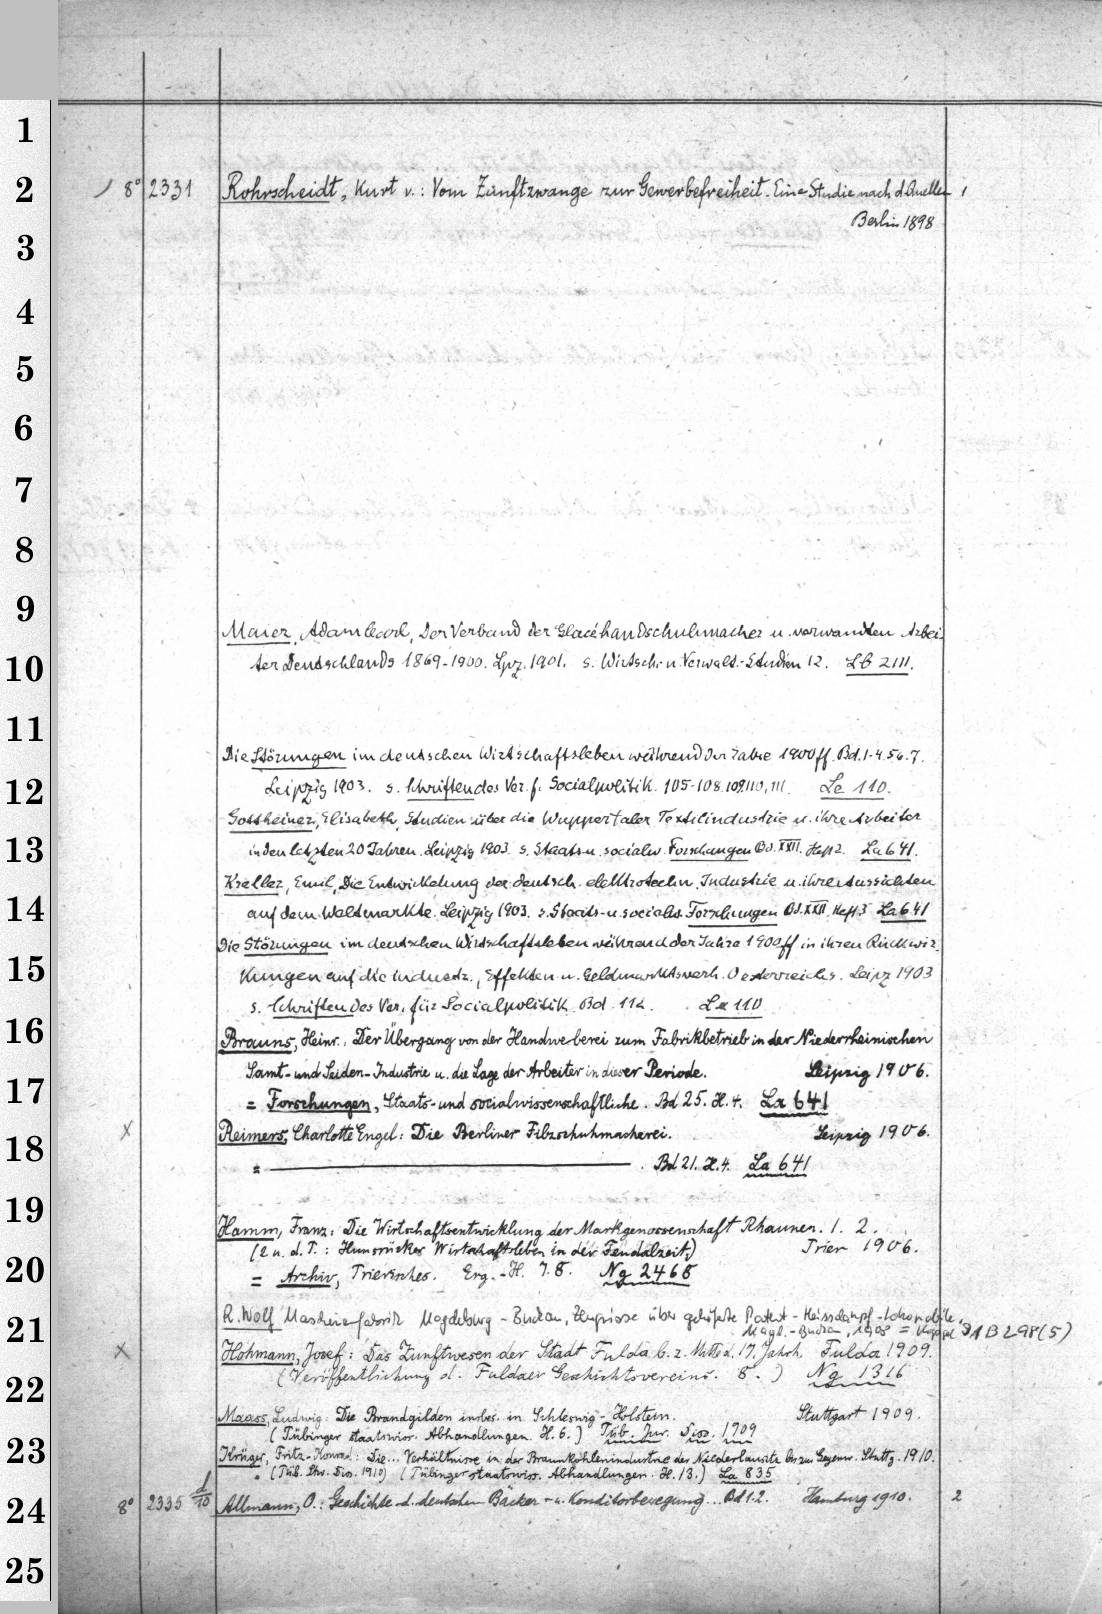 1
2
3
4
5
6
7
8
9
10
11
12
13
14
15
16
17
18
19
20
21
22
23
24
25
8° 2331 Rohrscheidt, Kurt v.: Vom Zunftzwange zur Gewerbefreiheit. Eine Studie nach d. Quellen 1
Berlin 1898
Maier, Adam Carl, Der Verband der Glacéhandschuhmacher u. verwandten Arbei-
ter Deutschlands 1869-1900. Lpz. 1901. s. Wirtsch.- u. Verwalt.-Studien 12. Lb 2111.
Die Störungen im deutschen Wirtschaftsleben während der Jahre 1900 ff. Bd. 1-4. 5 u. 7.
Leipzig 1903. s. Schriften des Ver. f. Socialpolitik. 105-108. 109. 110, 111. La 110.
Gottheiner, Elisabeth, Studien über die Wuppertaler Textilindustrie u. ihre Arbeiter
in den letzten 20 Jahren. Leipzig 1903. s. Staats u. socialw. Forschungen Bd. XXII. Heft 2. La 641.
Kreller, Emil, Die Entwickelung der deutsch. elektrotechn. Industrie u. ihre Aussichten
auf dem Weltmarkte. Leipzig 1903. s. Staats- u. socialw. Forschungen Bd. XXII. Heft 3 La 641
Die Störungen im deutschen Wirtschaftsleben während der Jahre 1900 ff in ihren Rückwir-
kungen auf die industr., Effekten u. Geldmarktsverh. Oesterreichs. Leipz 1903
s. Schriften des Ver. für Socialpolitik Bd. 112. La 110
Brauns, Heinr.: Der Übergang von der Handweberei zum Fabrikbetrieb in der Niederrheinischen
Samt- und Seiden-Industrie u. die Lage der Arbeiter in dieser Periode. Leipzig 1906.
= Forschungen, Staats- und socialwissenschaftliche. Bd 25. H. 4. La 641
x Reimers, Charlotte Engel: Die Berliner Filzschuhmacherei. Leipzig 1906.
" . Bd 21. H. 4. La 641
Hamm, Franz: Die Wirtschaftsentwicklung der Markgenossenschaft Rhaunen. 1. 2. 
(2 u. d. T.: Hunsrücker Wirtschaftsleben in der Feudalzeit) Trier 1906.
= Archiv, Trierisches. Erg.-H. 7. 8. Ng 2468
R. Wolf Maschinenfabrik Magdeburg - Buckau, Zeugnisse über gelieferte Patent-Heissdampf-Lokomobile.
Magd.-Buckau, 1908 = 31 B 298(5)
x Hohmann, Josef: Das Zunftwesen der Stadt Fulda b. z. Mitte d. 17. Jahrh. Fulda 1909.
(Veröffentlichung d. Fuldaer Geschichtsvereins. 8.) Ng 1316
Maass, Ludwig: Die Brandgilden insbes. in Schleswig-Holstein. Stuttgart 1909.
(Tübinger staatswiss. Abhandlungen. H. 6.) Tüb. Jur. Diss. 1909
Krüger, Fritz-Konrad: Die... Verhältnisse in der Braunkohlenindustrie der Niederlausitz bis zur Gegenw. Stuttg. 1910.
(Tüb. Diss. 1910) (Tübinger staatswiss. Abhandlungen. H. 13.) La 835
8° 2335 d/10 Allmann, O.: Geschichte d. deutschen Bäcker- u. Konditorbewegung... Bd 1. 2. Hamburg 1910. 2